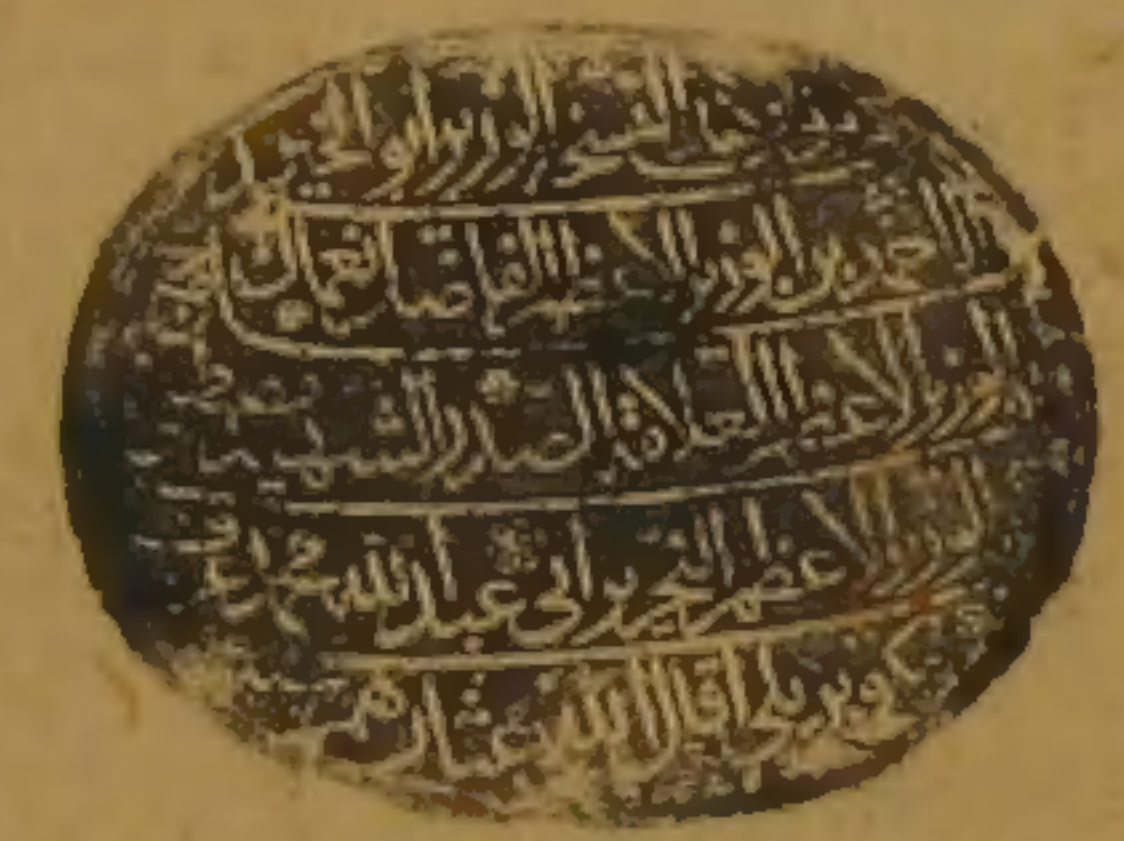 الشيخ الوزير ابو الخير
احمد بن الوزير الاعظم الفاضل نعمان بن
الوزير الاعظم العلامة الصدر الشهيد
الوزير الاعظم النحرير ابي عبد الله محمد عرف
بكوبريلي اقال الله عثارهم